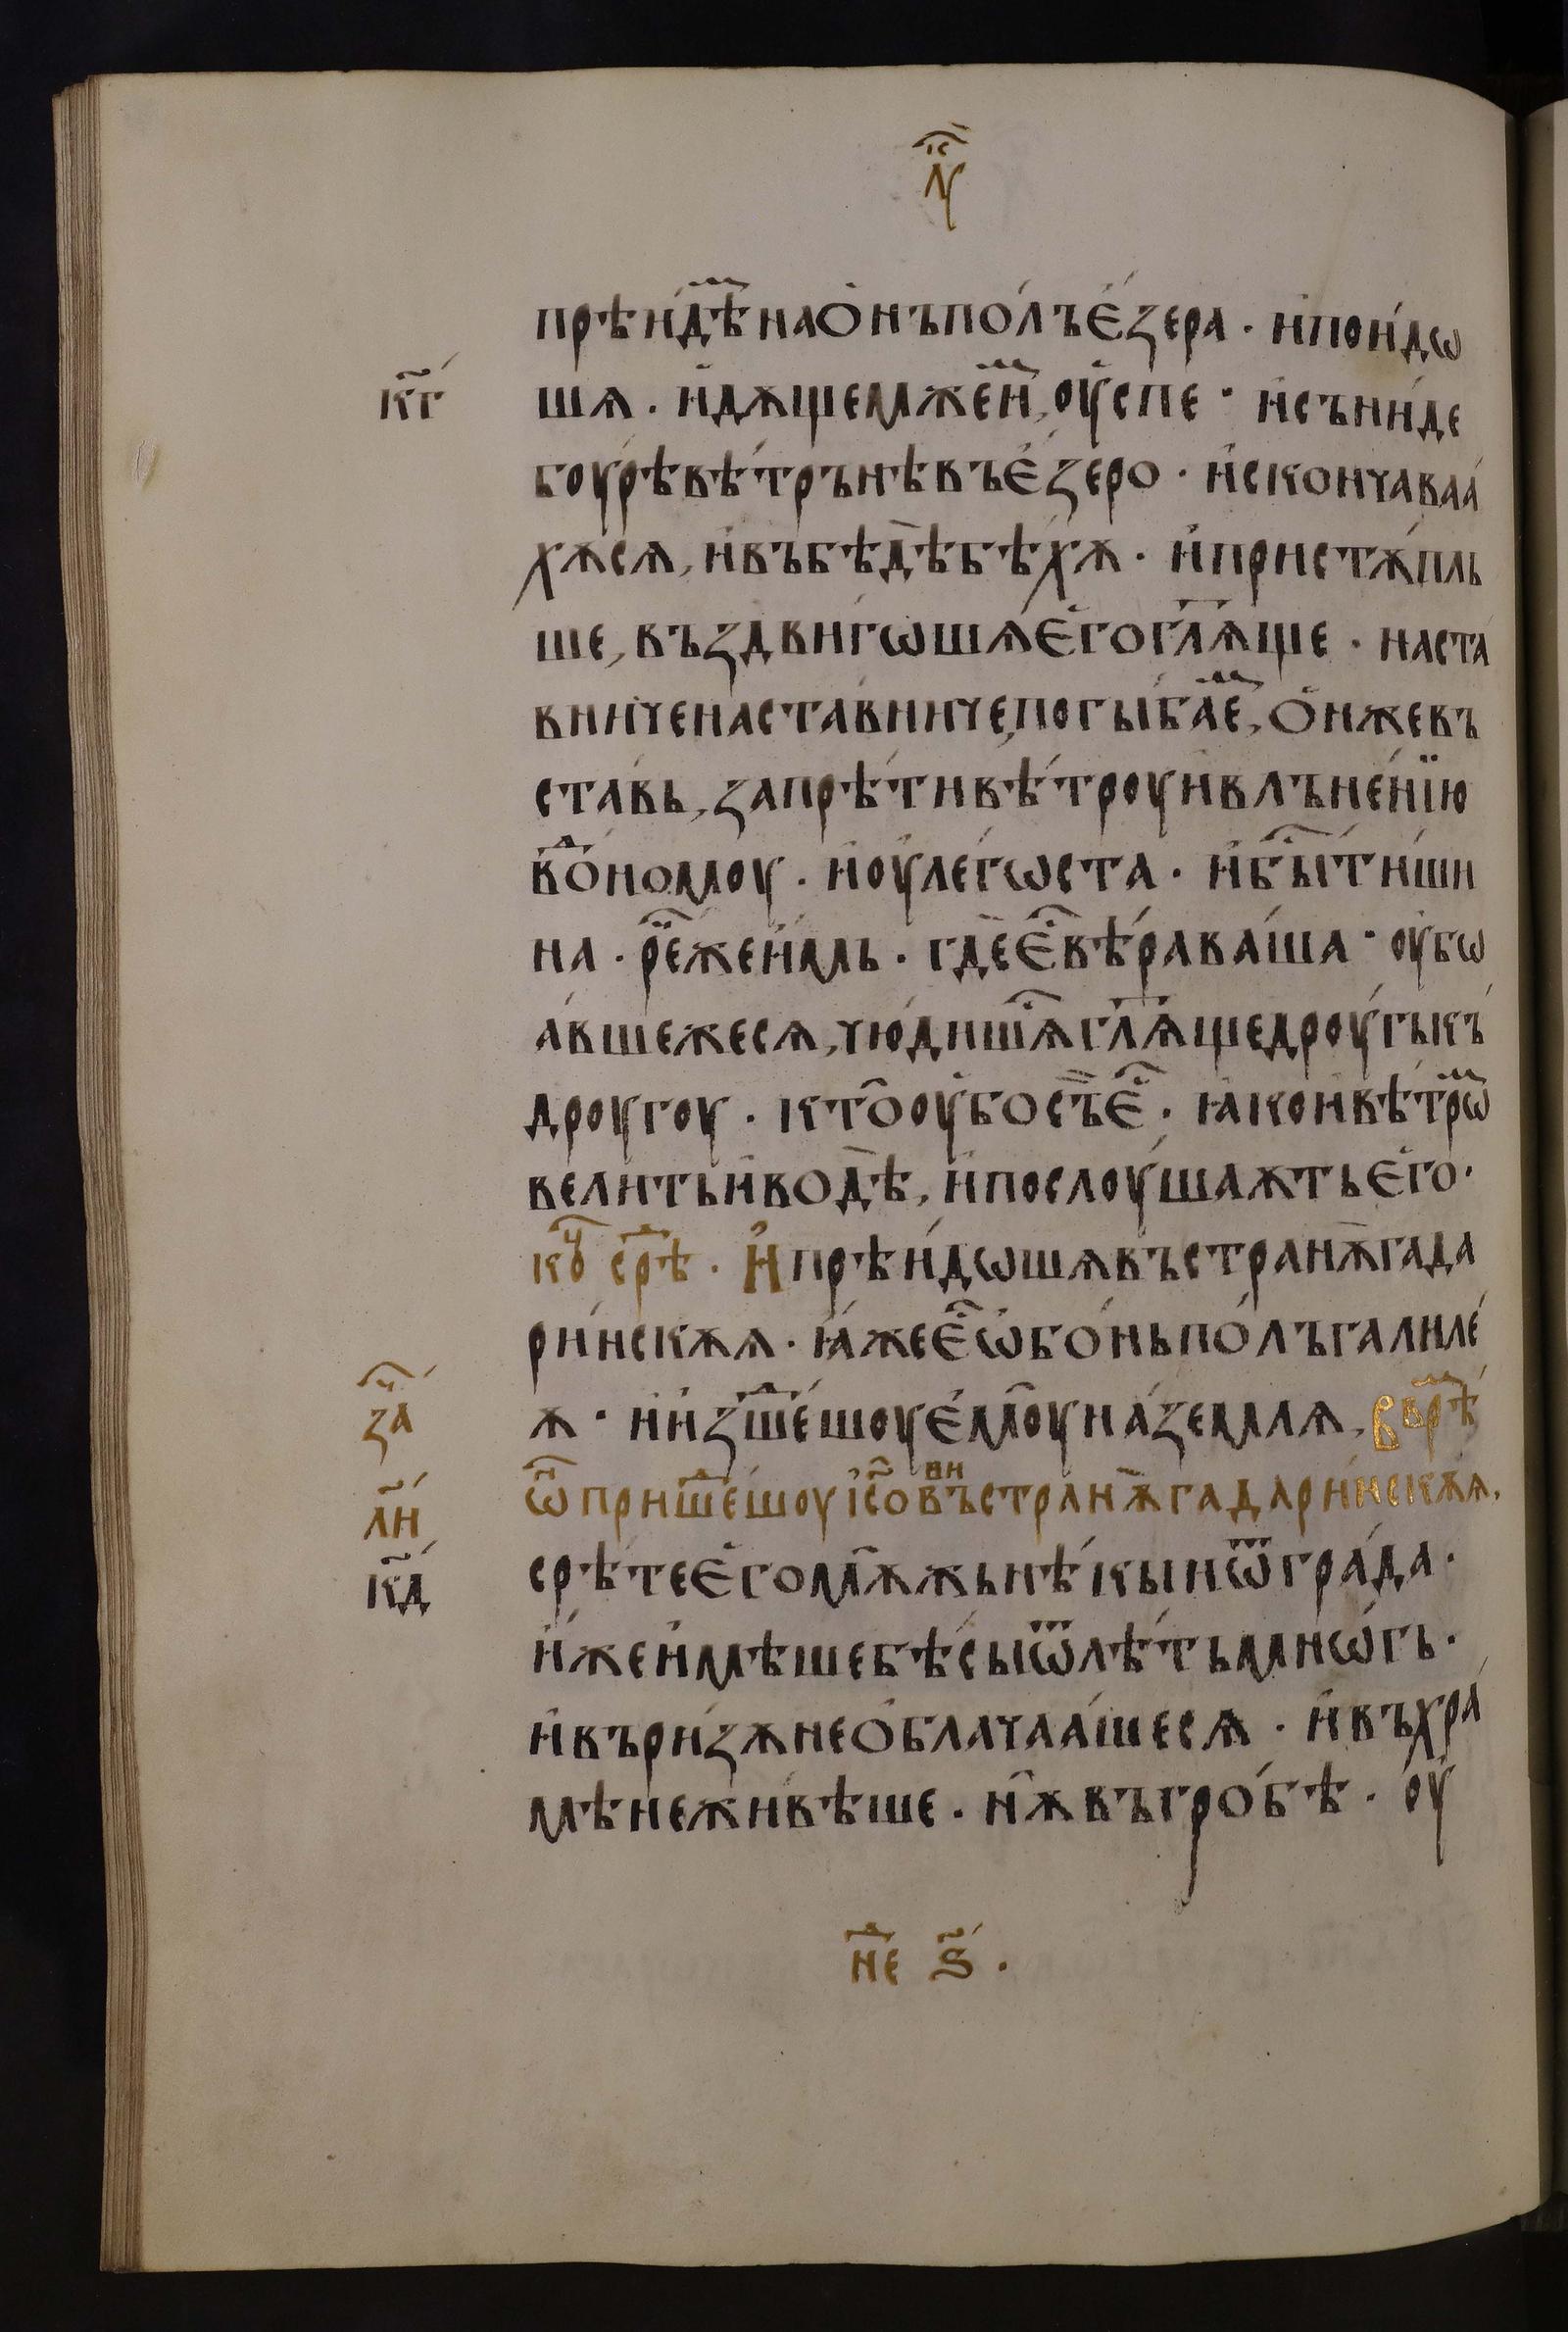 лꙋ҇к
прѣи́дѣⷨ наѻ́нъпо́лъе́ꙁера · и҆пои́дѡ
к҃г шѧ · и҆дѫщемжеи҆ⷨ, оу҆спе · и҆съни́де
боу́рѣвѣ́трънѣвъе́ꙁеро · и҆скончаваа́
хѫсѧ, и҆въбѣдѣбѣ́хѫ · и҆пристѫ́пль
ше, въꙁдви́гѡшѧе҆гогл҃ѧще · наста́
вничена́ста́вниче, погыба́еⷨ, ѻ҆нжевъ
ста́вь, ꙁапрѣ́тивѣ́троуи҆влъне́нїю
воⷣно́моу · и҆оу҆ле́гѡста · и҆быⷭ҇ти́ши
на · реⷱ҇жеи҆мь · гдееⷭ҇вѣ́рава́ша · оу҆бѡ
а́вшежесѧ, чю́дишѧⷭ҇гл҃ѧщедроу́гькъ
дроугоу · ктооу҆босъеⷭ҇ · ꙗ҆коивѣ́трѡⷨ
велитьи҆водѣ, и҆послоу́шаѫтье҆го ·
коⷰ҇ среⷣѣ · И҆прѣи́дѡшѧвъстранѫгада
ри́нскѫѧ · ꙗ҆жееⷭ҇ѡ҆бо́ньпо́лъгалиле́
ꙁаⷱ҇ ѫ · и҆иꙁшеⷣшоуе҆моуна́ꙁемлѧ, В врⷨѣ
л҃и ѡⷩ҇ пришеⷣшоуі҆соⷭ҇въстранѫгадари́нскѫѧ,
к҃д срѣ́тее҆гомѫжьнѣ́кыиѿгра́да ·
и҆жеи҆мѣшебѣ́сыѿлѣ́тьмнѡ́гь ·
и҆въри́ꙁѫнеѻ҆блачаа́шесѧ · и҆въхра́
мѣнежи́вѣше · нѫвъгро́бѣ · оу҆
неⷣ ѕ҃ ·